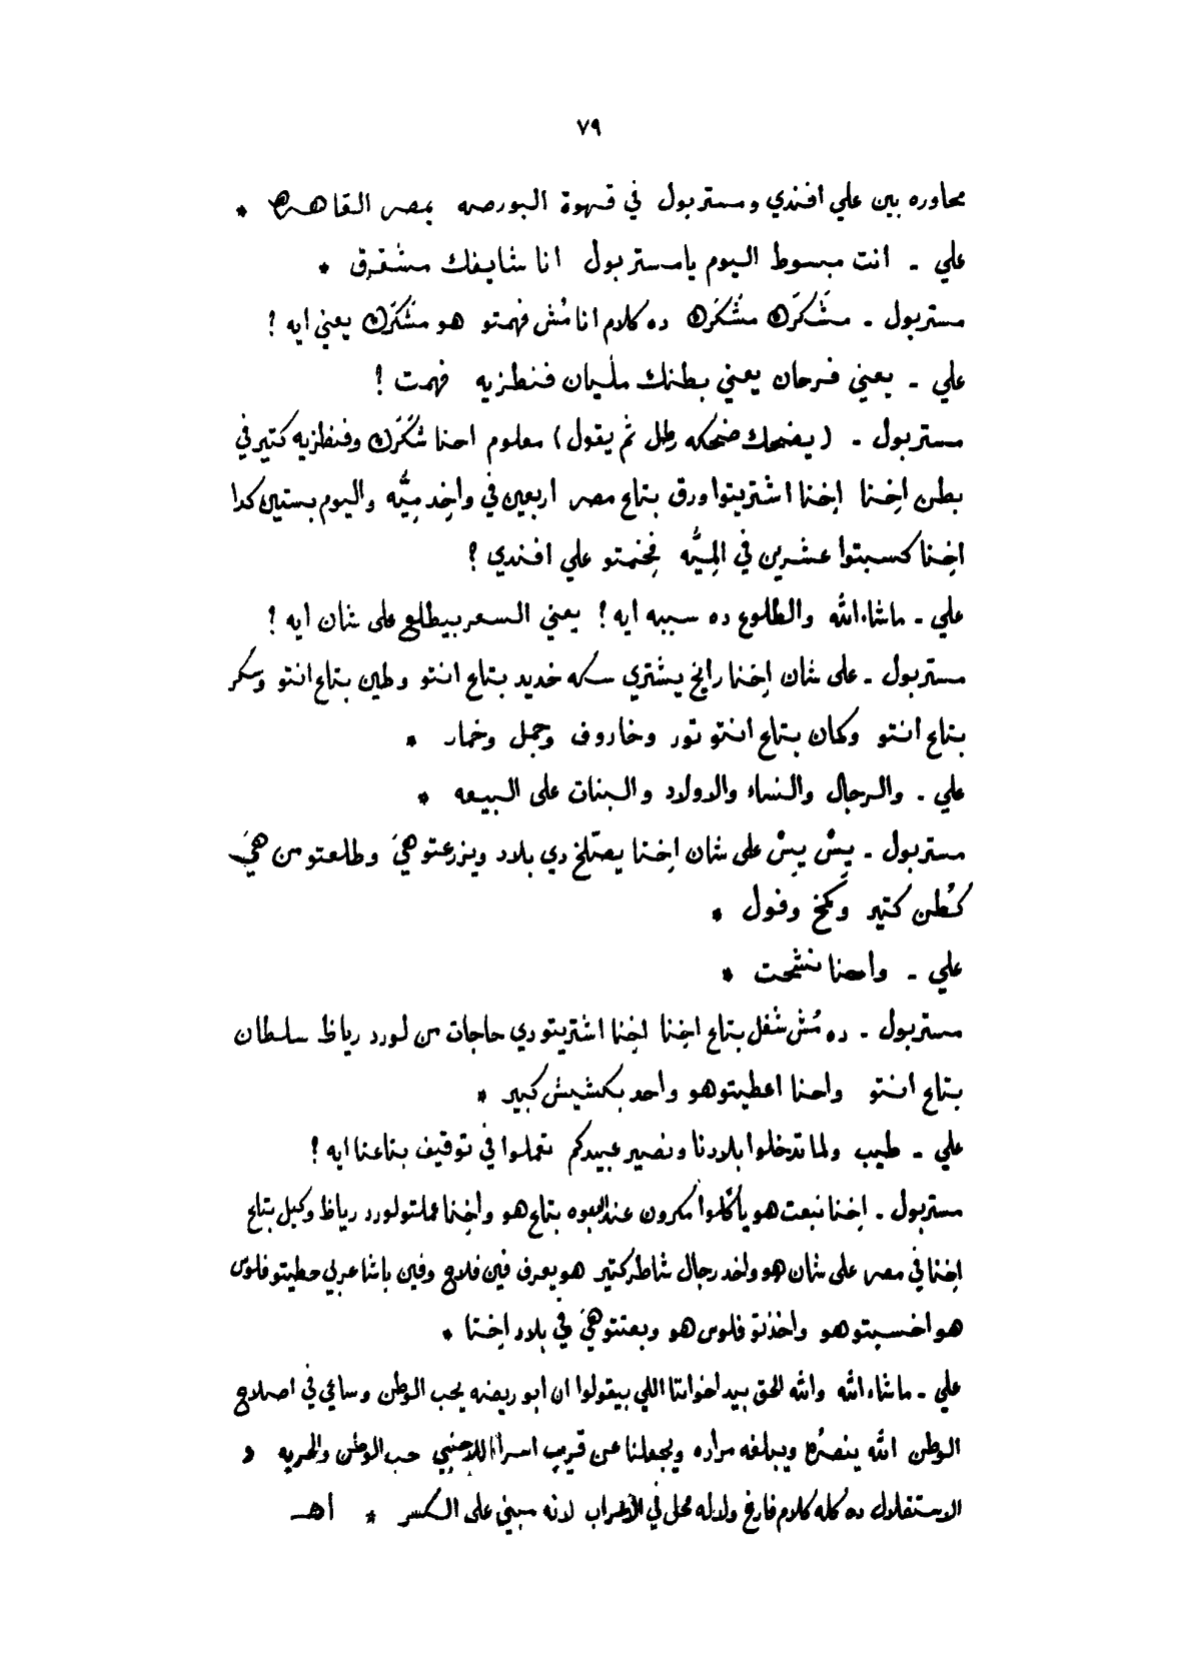 ٧٩
محاوره بين علي افندي ومستر بول في قهوة البورصه بمصر القاهره *
علي - انت مبسوط اليوم يا مستر بول انا شايفك مشقرق *
مستر بول - مشَكرَك مشَكرَك ده كلام انا مُش فهمتو هو مشَكرَك يعني ايه ؟
علي - يعني فرحان يعني بطنك مليان فنطزيه فهمت ؟
مستر بول - (يضحك ضحكه رطل ثم يقول) معلوم احنا شَكرَك وفنطزيه كتير في
بطن اِخنا اِخنا اشتريتوا ورق بتاع مصر اربعين في واخِد مِيَّه واليوم بستين كدا
اخِنا كسبتوا عشرين في المِيَّه فِخمتو علي افندي ؟
علي - ماشاءالله والطلوع ده سببه ايه ؟ يعني السعر بيطلع على شان ايه ؟
مستر بول - على شان اِخنا رايخ يشتري سكه خديد بتاع انتو وطين بتاع انتو وسكر
بتاع انتو وكمان بتاع انتو تور وخاروف وجمل وخمار *
علي - والرجال والنساء والاولاد والبنات على البيعه *
مستر بول - يِسْ يِسْ على شان اِخنا يصلّخ دي بلاد ويزرعتو هيَ وطلعتو من هيَ
كُطن كتير وكَمخ وفول *
علي - واحنا نشحت *
مستر بول - ده مُش شغل بتاع اخِنا اخِنا اشتريتو دي حاجات من لورد رياظ سلطان
بتاع انتو واحنا اعطيتو هو واحد بكشيش كبير *
علي - طيب ولما تدخلوا بلادنا ونصير عبيدكم تعملوا في توفيق بتاعنا ايه ؟
مستر بول - اخِنا نبعت هو ياكلوا مكرون عند ابوه بتاع هو واخِنا عملتو لورد رياظ وكيل بتاع
اخِنا في مصر على شان هو واخد رجال شاطر كتير هو يعرف فين فلاح وفين باشا عربي حطيتو فلوس
هو اخسبتو هو واخذتو فلوس هو وبعتتو هيَ في بلاد اخِنا *
علي - ماشاءالله والله الحق بيد اخواننا اللي بيقولوا ان ابو ريضه يحب الوطن وساعي في اصلاح
الوطن الله ينصُره ويبلغه مراده ويجعلنا عن قريب اسراً للاجنبي حب الوطن والحريه و
الاستقلال ده كله كلام فارغ ولاله محل في الاعراب لانه مبني على الكسر * اهـ